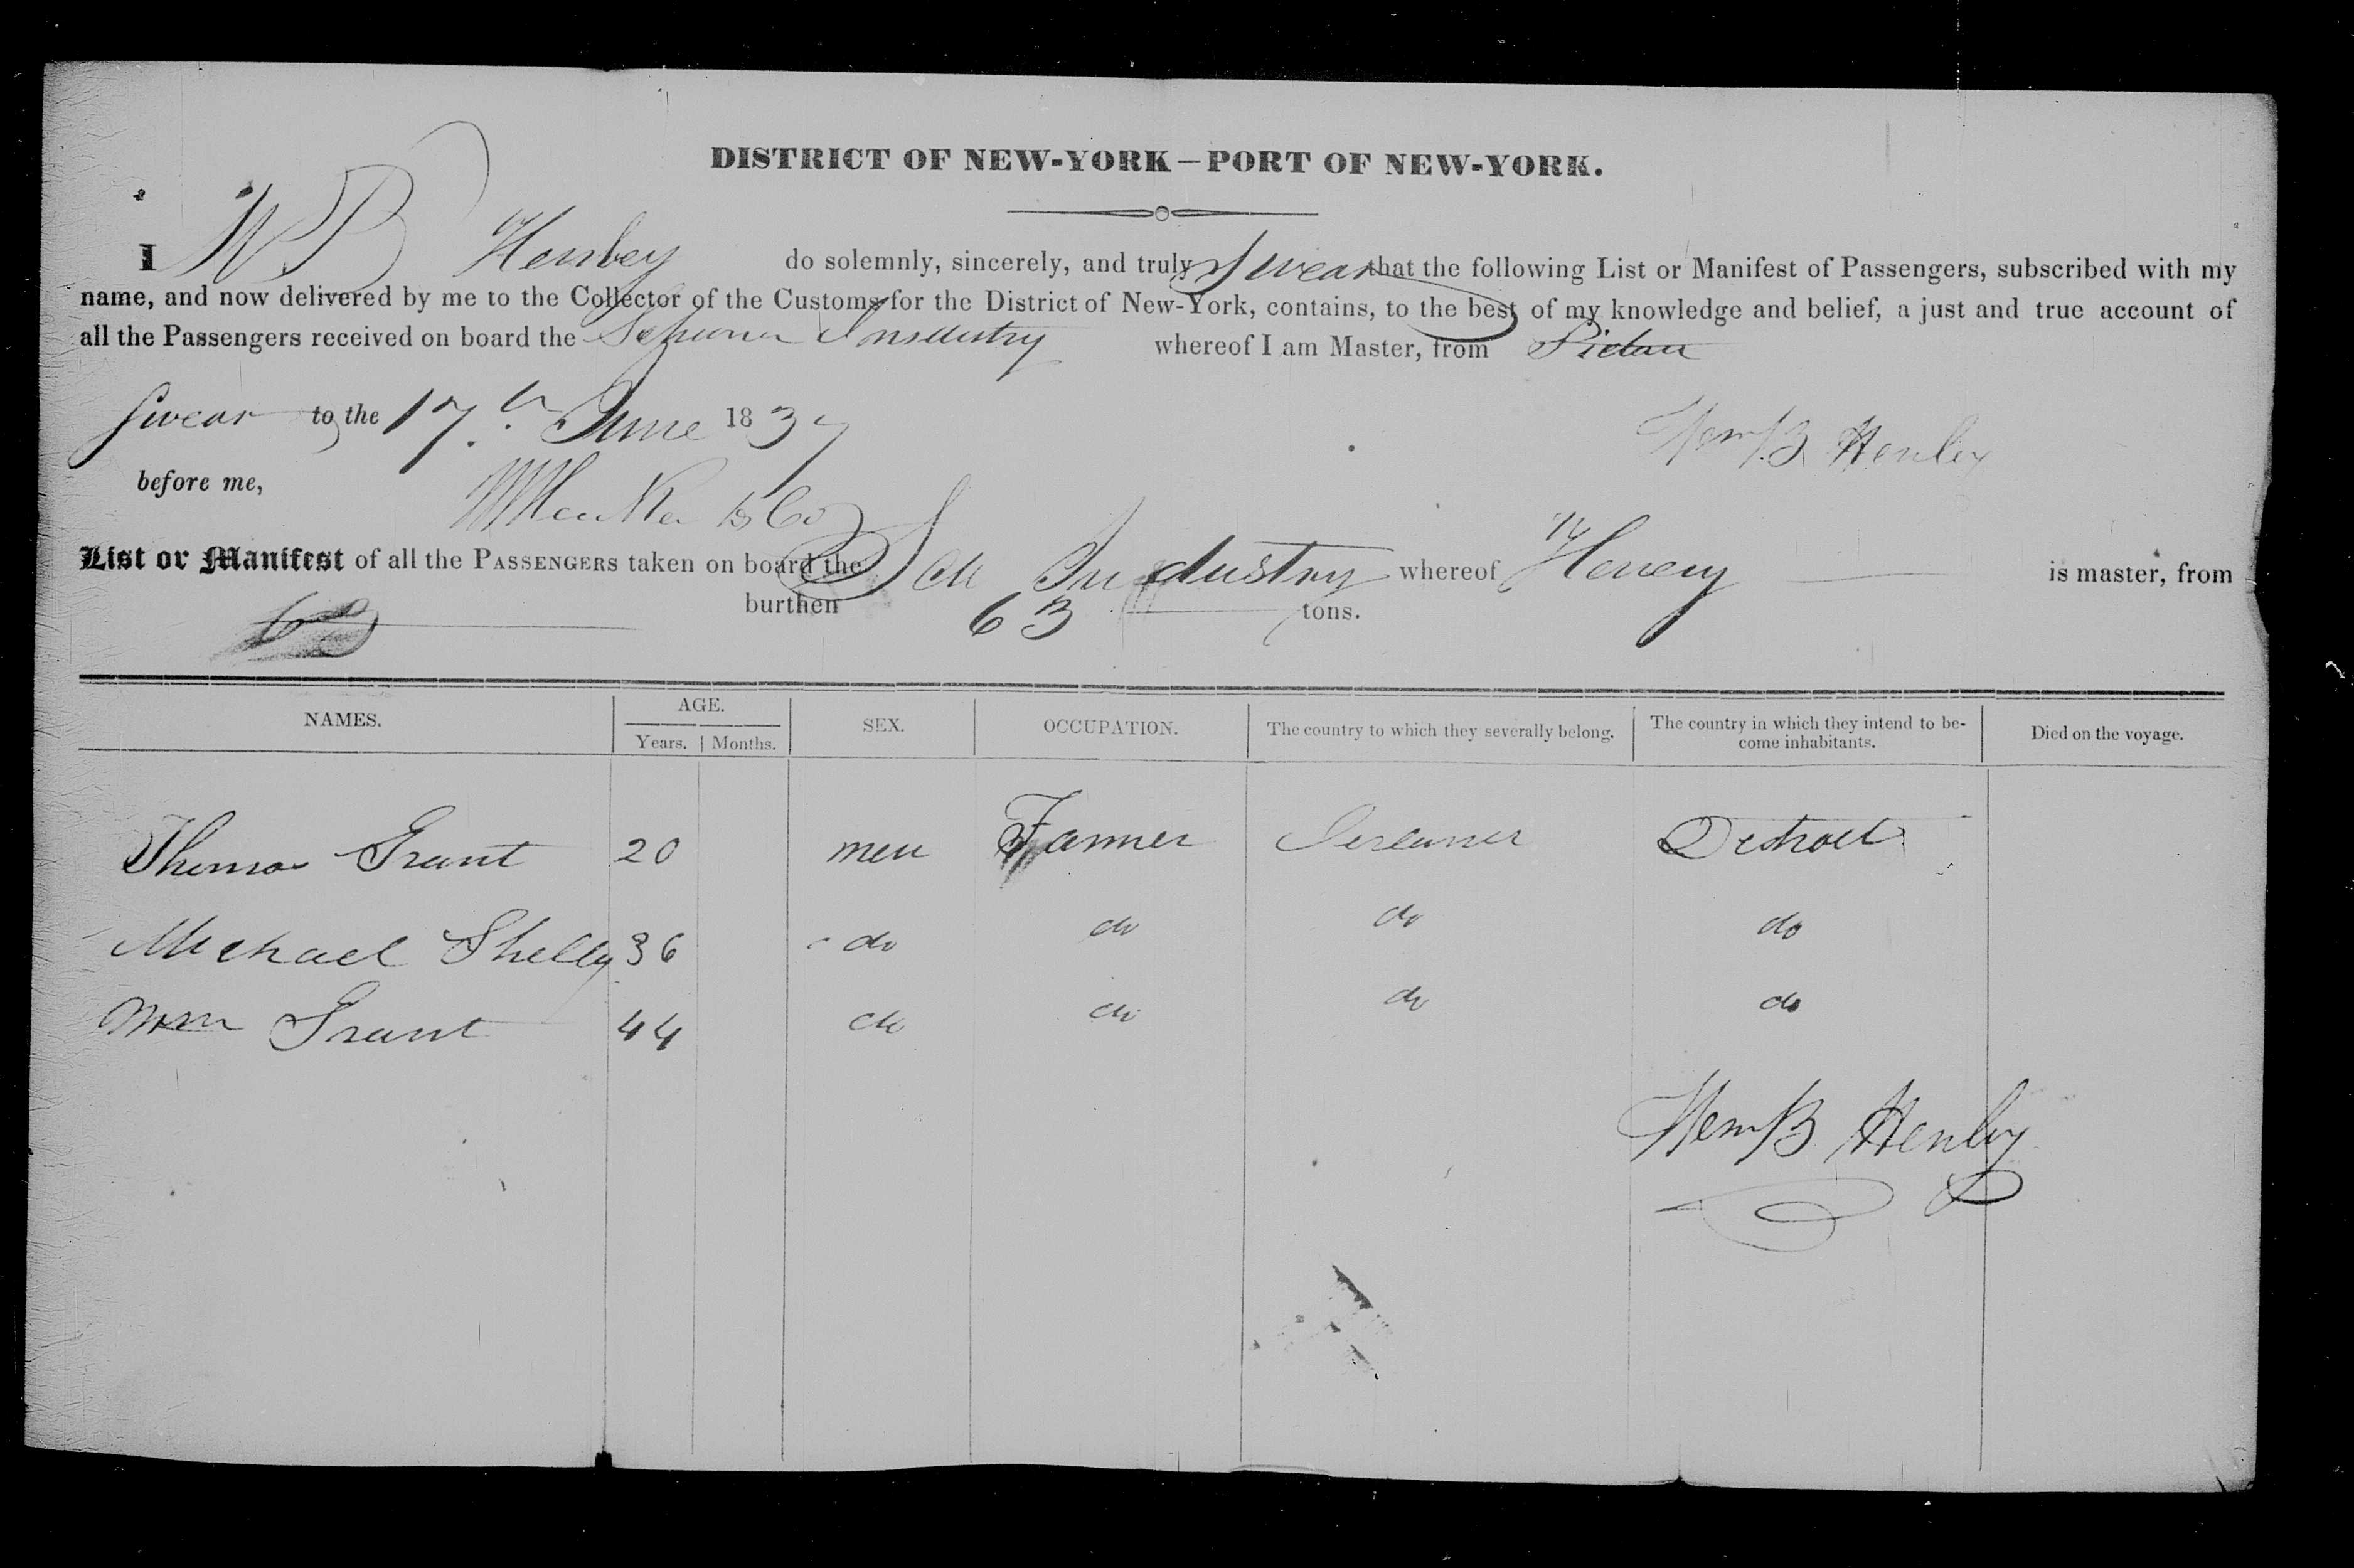 DISTRICT OF NEW-YORK—PORT OF NEW-YORK.
I W B Henley do solemnly, sincerely, and truly Swear that the following List or Manifest of Passengers, subscribed with my
name, and now delivered by me to the Collector of the Customs for the District of New-York, contains, to the best of my knowledge and belief, a just and true account of
all the Passengers received on board the Industry whereof I am Master, from Pictou
Swear to the 17th June 1837
Wem B Henley
before me,
List or Manifest of all the PASSENGERS taken on board the Sch Industry whereof Henery is master, from
burthen 63 tons.
NAMES. AGE. SEX. OCCUPATION. The country to which they severally belong. The country in which they intend to be-come inhabitants. Died on the voyage.
Years. Months.
Thomas Grant 20 men Farmer Detroit
Michael Shelly 36 do do do do
Wm Grant 44 do do do do
Wem B Henley